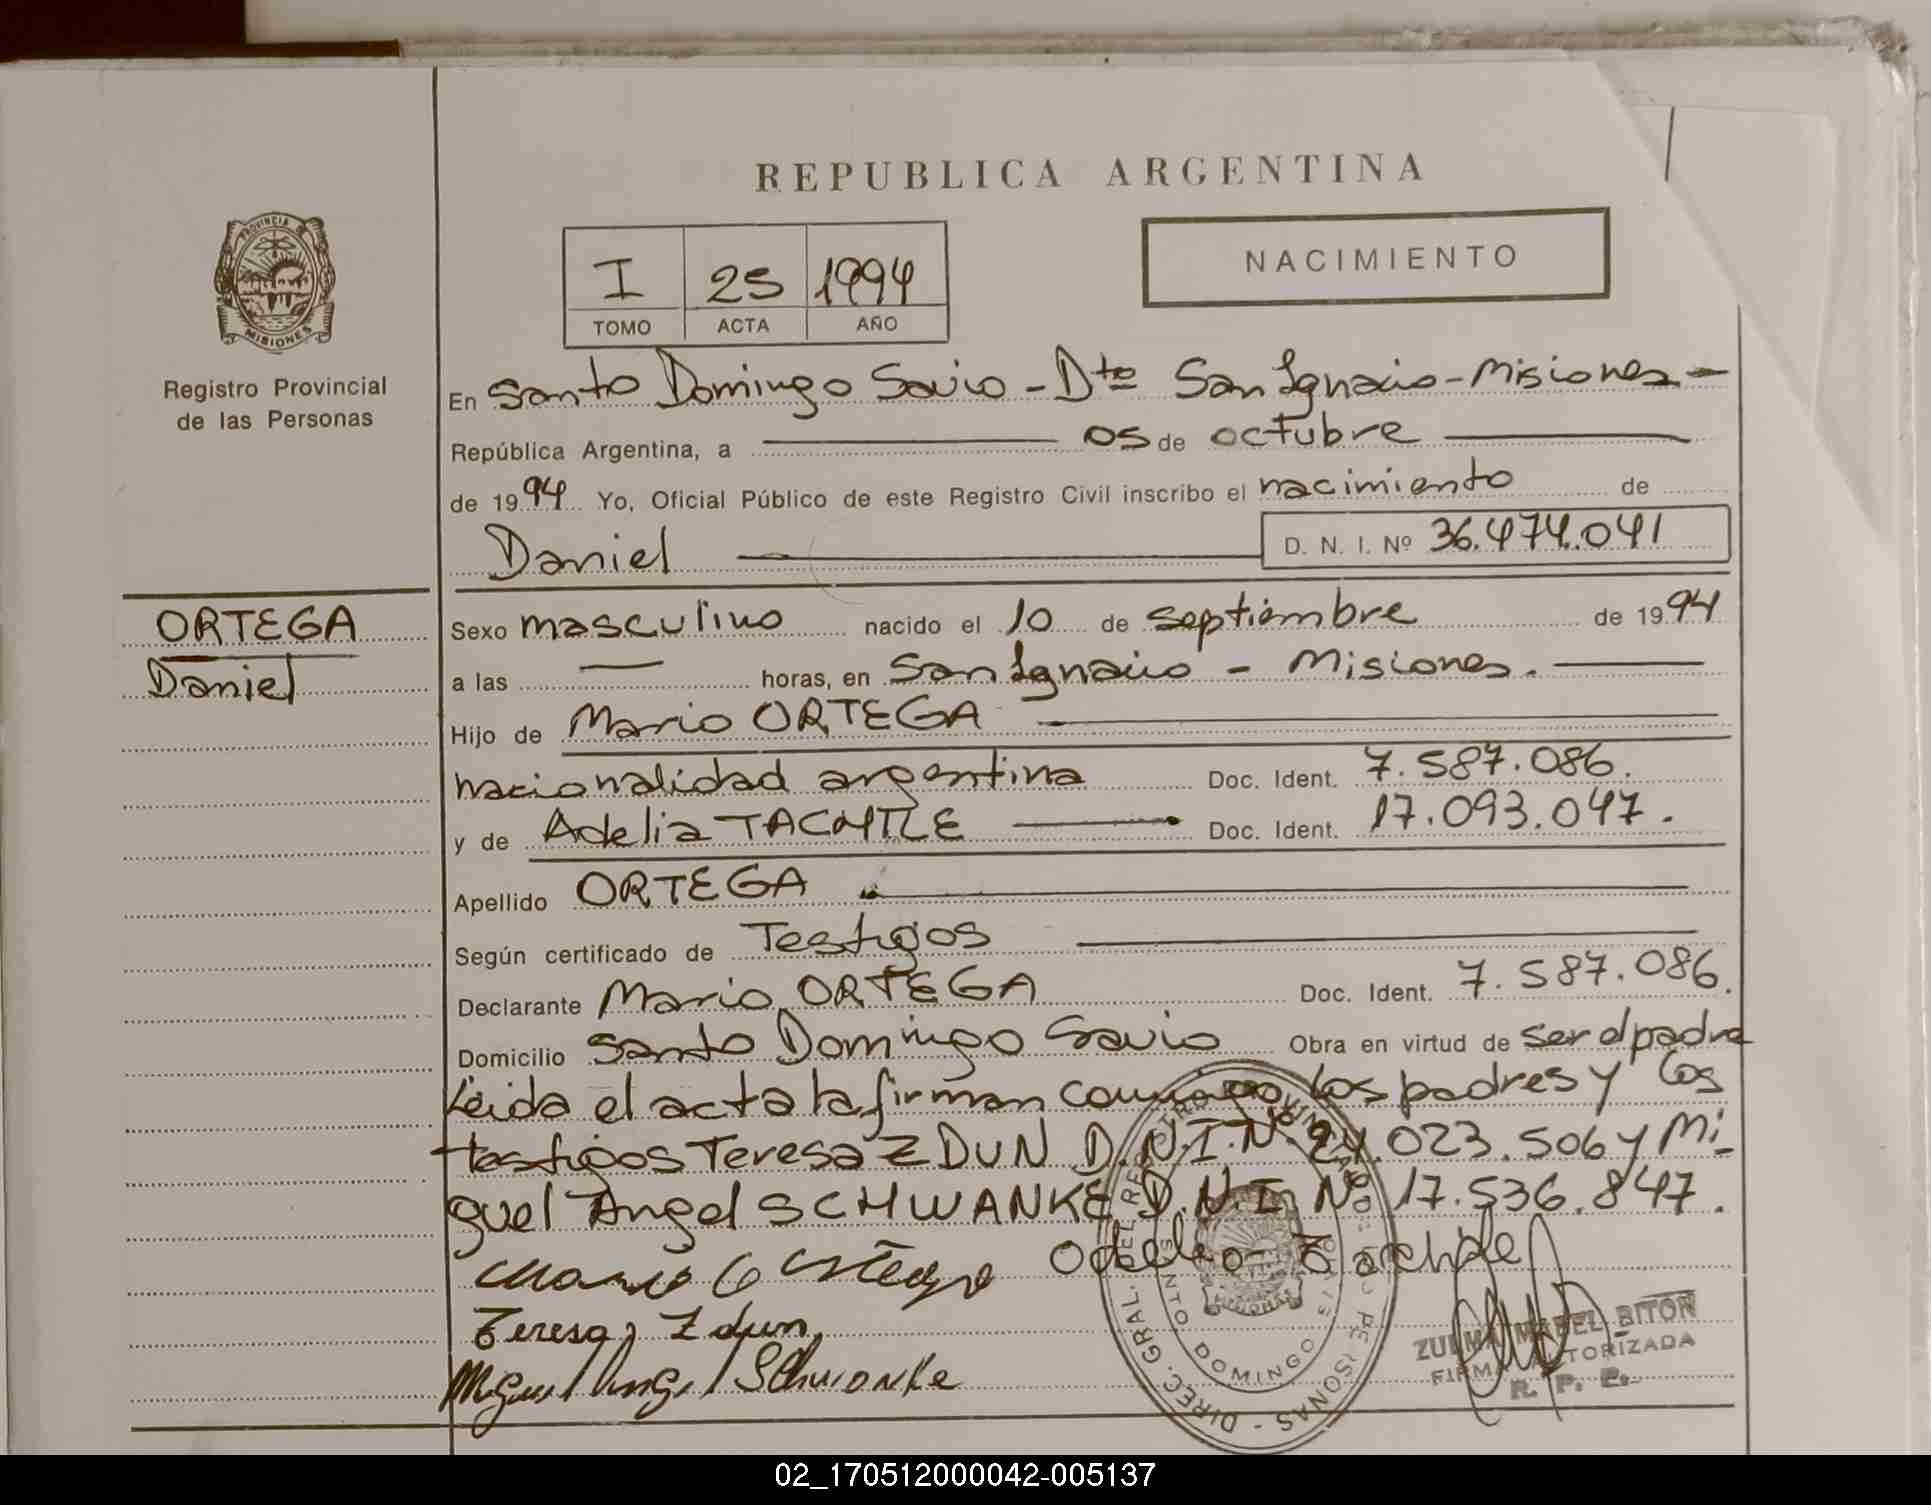 REPUBLICA ARGENTINA
PROVINCIA DE
MISIONES
Registro Provincial
de las Personas
I 25 1994
TOMO ACTA AÑO
NACIMIENTO
En Santo Domingo Savio - Dto San Ignacio - Misiones -
República Argentina, a 05 de octubre
de 1994 Yo, Oficial Público de este Registro Civil inscribo el nacimiento de
Daniel D. N. I. Nº 36.474.041
ORTEGA
Daniel
Sexo masculino nacido el 10 de septiembre de 1994
a las — horas, en San Ignacio - Misiones.
Hijo de Mario ORTEGA
nacionalidad argentina Doc. Ident. 7.587.086.
y de Adelia TACHTLE Doc. Ident. 17.093.047.
Apellido ORTEGA
Según certificado de Testigos
Declarante Mario ORTEGA Doc. Ident. 7.587.086.
Domicilio Santo Domingo Savio Obra en virtud de ser el padre
Leida el acta la firman conmigo los padres y los
testigos Teresa ZDUN D.N.I. Nº 24.023.506 y Mi-
guel Angel SCHWANKE D.N.I. Nº 17.536.847.
Mario Ortega
Teresa Zdun
Miguel Angel Schwanke
DIREC. GRAL. DEL REGISTRO
SANTO DOMINGO SAVIO
ZULMA MABEL BITON
FIRMA AUTORIZADA
R. P. P.
02_170512000042-005137